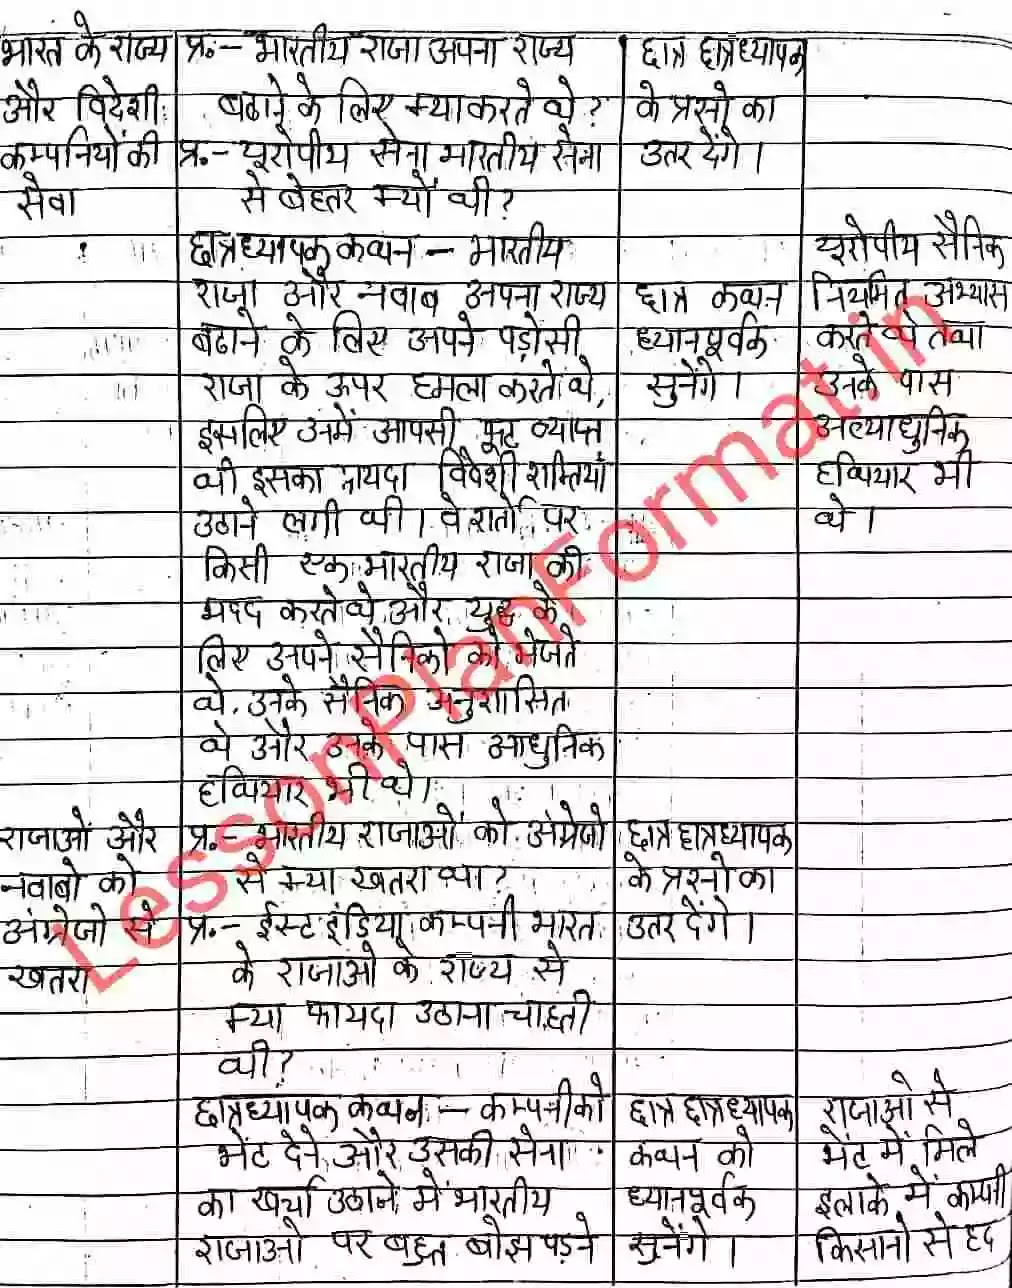 भारत के राज्य
और विदेशी
कम्पनियों की
सेवा
प्र.- भारतीय राजा अपना राज्य
बढाने के लिए क्या करते थे?
प्र.- यूरोपीय सेना भारतीय सेना
से बेहतर क्यों थी?
छात्र छात्रध्यापक
के प्रश्नो का
उतर देंगे।
छात्रध्यापक कथन - भारतीय
राजा और नवाब अपना राज्य
बढाने के लिए अपने पड़ोसी
राजा के ऊपर हमला करते थे,
इसलिए उनमें आपसी फूट व्याप्त
थी इसका फायदा विदेशी शक्तियाँ
उठाने लगी थी। वे शर्तो पर
किसी एक भारतीय राजा की
मदद करते थे और युद्ध के
लिए अपने सैनिको को भेजते
थे. उनके सैनिक अनुशासित
थे और उनके पास आधुनिक
हथियार भी थे।
छात्र कथन
ध्यानपूर्वक
सुनेंगे।
यूरोपीय सैनिक
नियमित अभ्यास
करते थे तथा
उनके पास
अत्याधुनिक
हथियार भी
थे।
राजाओं और
नवाबो को
अंग्रेजो से
खतरा
प्र.- भारतीय राजाओं को अंग्रेजो
से क्या खतरा था?
प्र.- ईस्ट इंडिया कम्पनी भारत
के राजाओ के राज्य से
क्या फायदा उठाना चाहती
थी?
छात्र छात्रध्यापक
के प्रश्नो का
उतर देंगे।
छात्रध्यापक कथन - कम्पनी को
भेंट देने और उसकी सेना
का खर्चा उठाने में भारतीय
राजाओ पर बहुत बोझ पड़ने
छात्र छात्रध्यापक
कथन को
ध्यानपूर्वक
सुनेंगे।
राजाओ से
भेंट में मिले
इलाके में कम्पनी
किसानो से हद
LessonPlanFormat.in